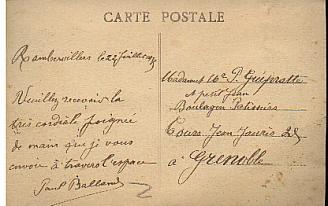 CARTE POSTALE
Rambervillers le 22 juillet
Veuillez recevoir la
très cordiale poignée
de main que je vous
envoie à travers l'espace
Paul Balland
Madame et Mr P.
Boulanger Patissier
Cours Jean Jaurès
à Grenoble